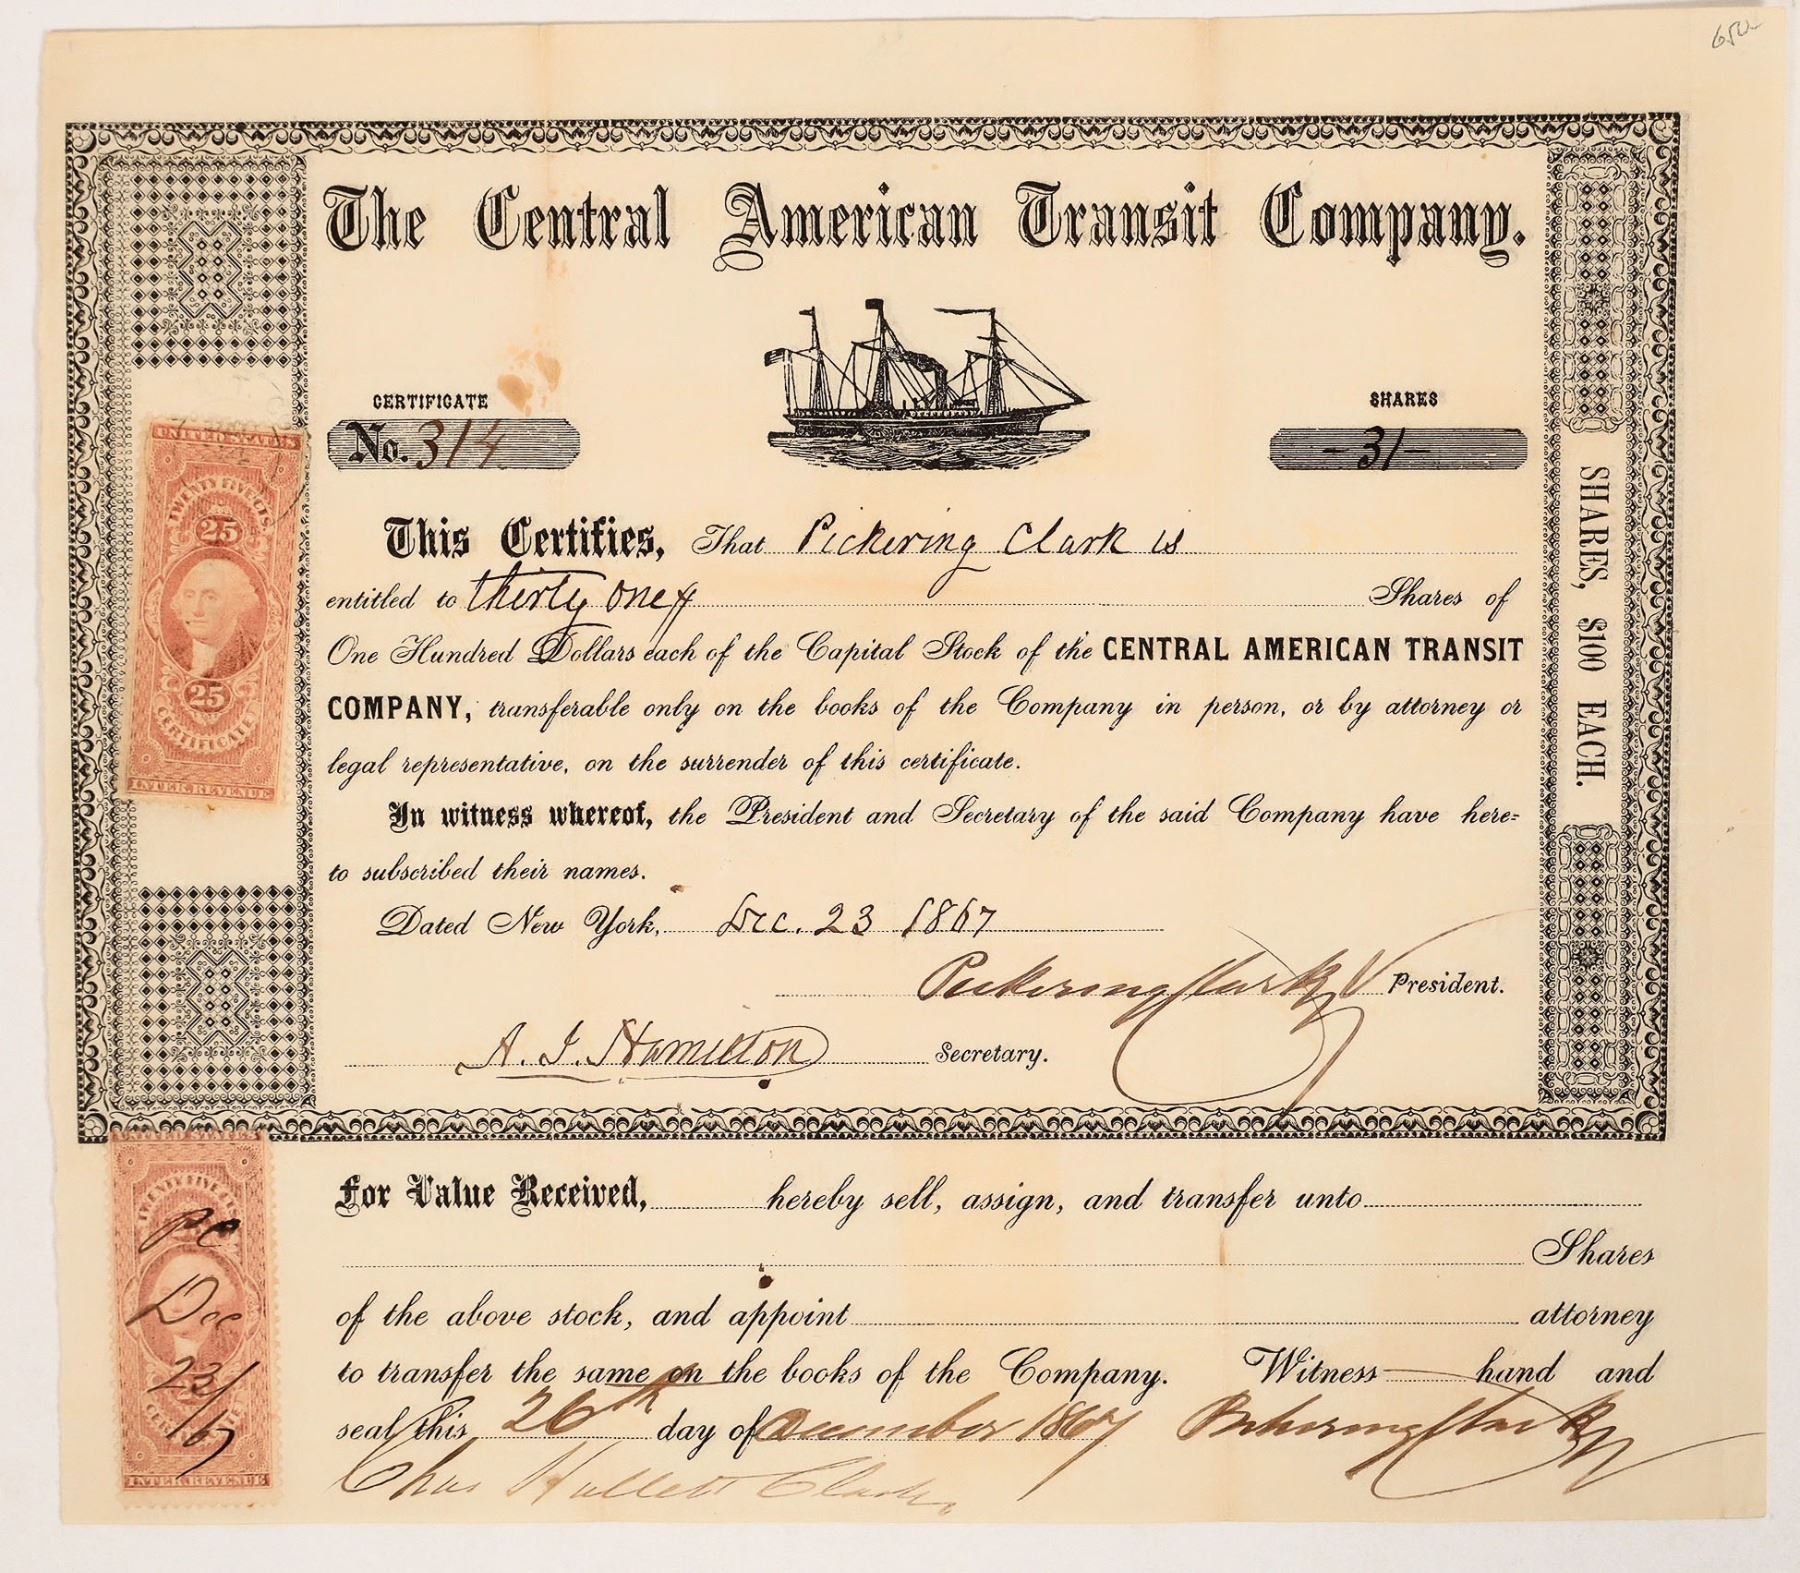 The Central American Transit Company.
CERTIFICATE
No. 314
SHARES
-31-
This Certifies, That Pickering Clark is
entitled to thirty one Shares of
One Hundred Dollars each of the Capital Stock of the CENTRAL AMERICAN TRANSIT
COMPANY, transferable only on the books of the Company in person, or by attorney or
legal representative, on the surrender of this certificate.
In witness whereof, the President and Secretary of the said Company have here=
to subscribed their names.
Dated New York, Dec. 23 1867
Pickering Clark President.
A. J. Hamilton Secretary.
SHARES, $100 EACH.
UNITED STATES
TWENTY FIVE CTS.
25
25
CERTIFICATE
INTER. REVENUE
For Value Received, hereby sell, assign, and transfer unto
Shares
of the above stock, and appoint attorney
to transfer the same on the books of the Company. Witness hand and
seal this 26th day of December 1867 Pickering Clark
Chas Hallett Clark
TWENTY FIVE CTS.
PC
Dec
23/67
CERTIFICATE
INTER. REVENUE